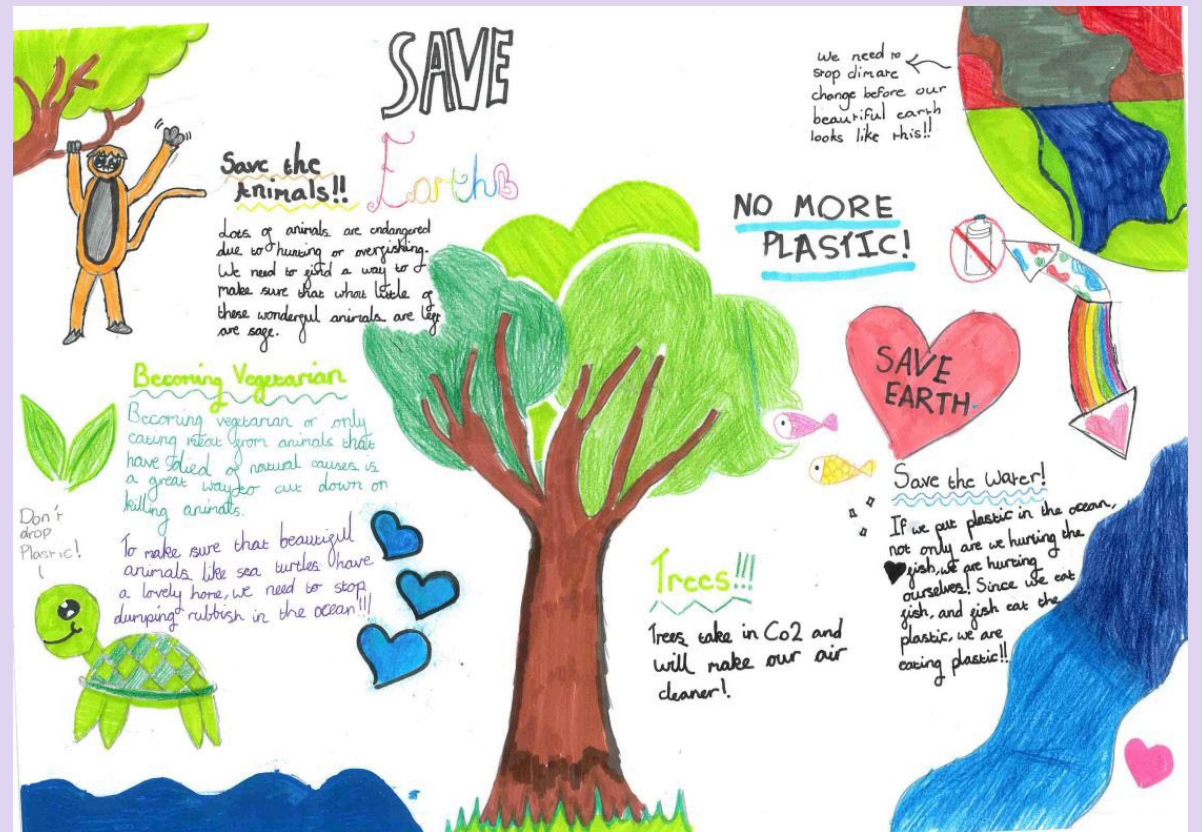 SAVE
Earth
We need to
stop climate
change before our
beautiful earth
looks like this!!
Save the
Animals!!
Lots of animals are endangered
due to hunting or overfishing.
We need to find a way to
make sure that what little of
these wonderful animals are left
are safe.
NO MORE
PLASTIC!
SAVE
EARTH
Becoming Vegetarian
Becoming vegetarian or only
eating meat from animals that
have died of natural causes is
a great way to cut down on
killing animals.
To make sure that beautiful
animals like sea turtles have
a lovely home, we need to stop
dumping rubbish in the ocean!!!
Don't
drop
Plastic!
Trees!!!
Trees take in Co2 and
will make our air
cleaner!
Save the Water!
If we put plastic in the ocean,
not only are we hurting the
fish, we are hurting
ourselves! Since we eat
fish, and fish eat the
plastic, we are
eating plastic!!